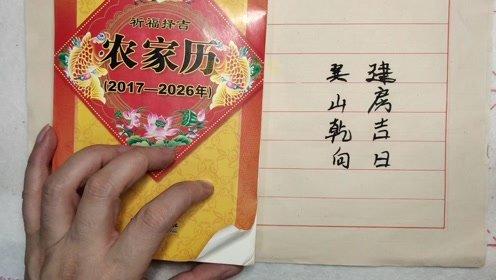 祈福择吉
农家历
(2017—2026年)
建房吉日
巽山乾向